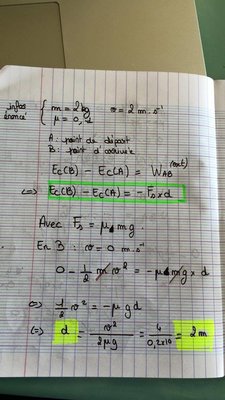 infos énoncé { m = 2 kg v = 2 m·s⁻¹
μ = 0,1
A : point de départ
B : point d'arrivée
Ec(B) − Ec(A) = W_AB (ext)
(=) Ec(B) − Ec(A) = − Fs × d
Avec Fs = μ mg.
En B : v = 0 m·s⁻¹
0 − 1/2 m v² = − μ mg × d
(=) 1/2 v² = − μ g d
(=) d = v²/2μg = 4/0,2×10 = 2 m